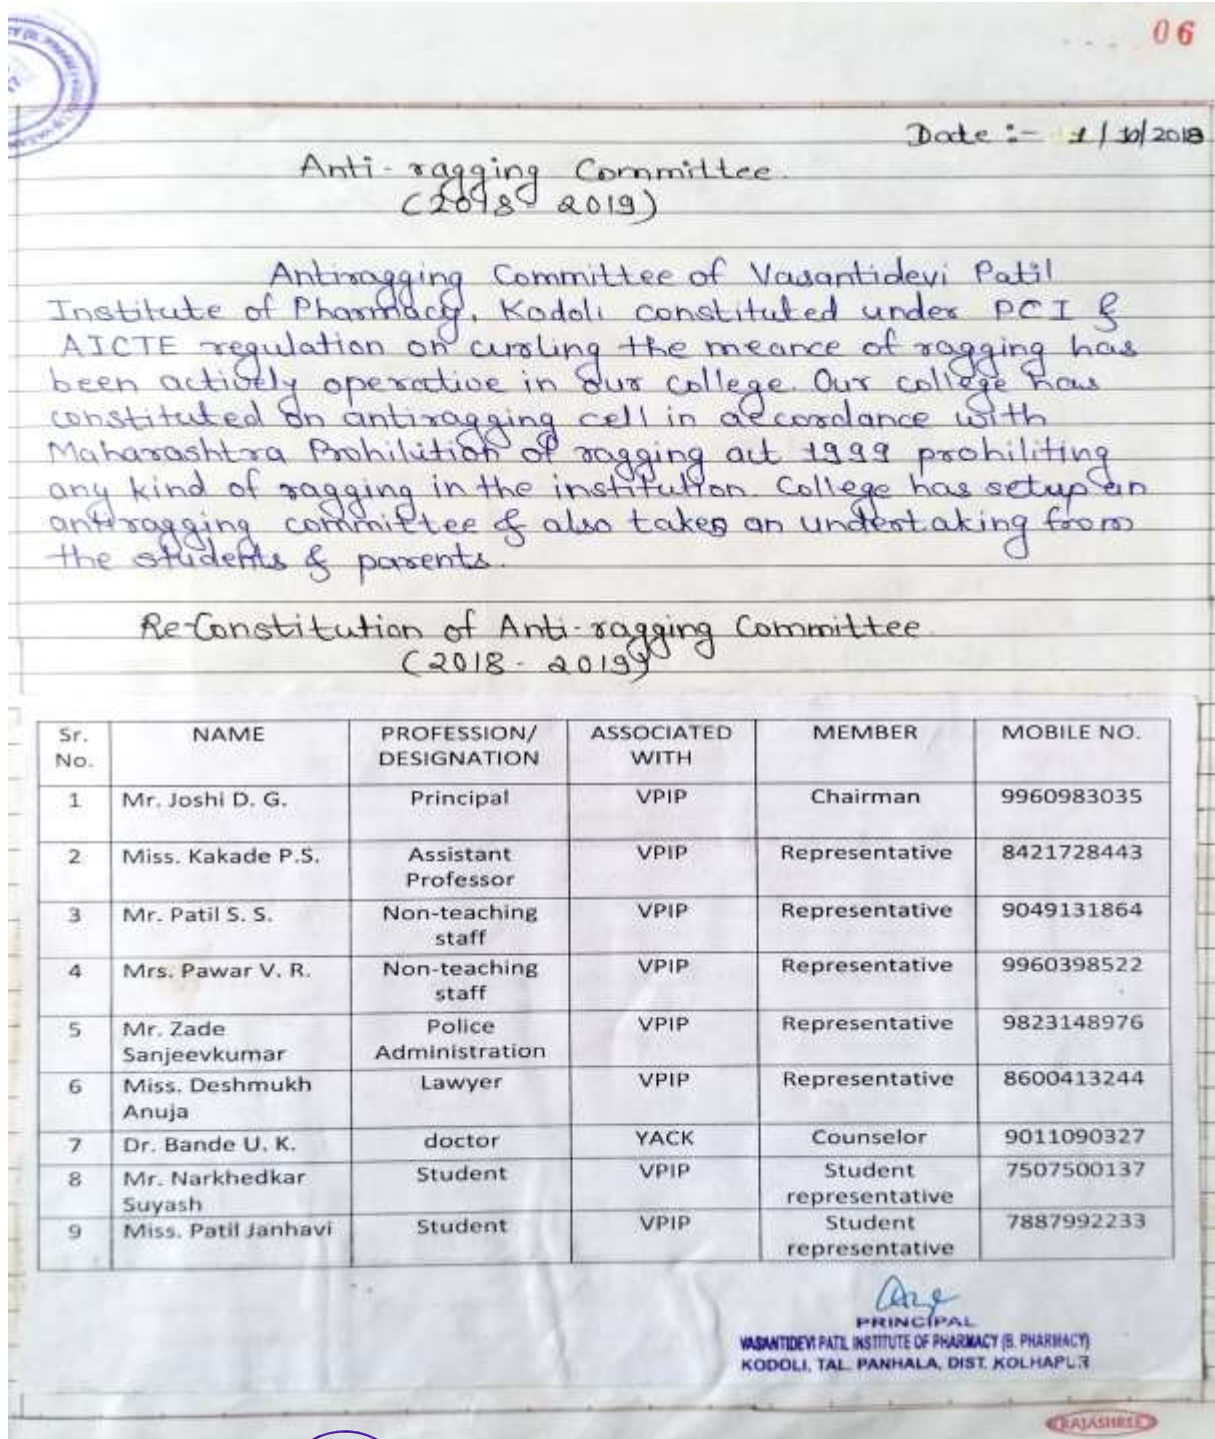 06
Date :- 1/10/2018
Anti-ragging Committee.
(2018-2019)
Antiragging Committee of Vasantidevi Patil
Institute of Pharmacy, Kodoli constituted under PCI &
AICTE regulation on curling the meance of ragging has
been actively operative in our college. Our college has
constituted an antiragging cell in accordance with
Maharashtra Prohilition of ragging act 1999 prohiliting
any kind of ragging in the institution. College has setup an
antiragging committee & also takes an undertaking from
the students & parents.
Re-Constitution of Anti-ragging Committee
(2018-2019)
Sr. No. NAME PROFESSION/ DESIGNATION ASSOCIATED WITH MEMBER MOBILE NO.
1 Mr. Joshi D. G. Principal VPIP Chairman 9960983035
2 Miss. Kakade P.S. Assistant Professor VPIP Representative 8421728443
3 Mr. Patil S. S. Non-teaching staff VPIP Representative 9049131864
4 Mrs. Pawar V. R. Non-teaching staff VPIP Representative 9960398522
5 Mr. Zade Sanjeevkumar Police Administration VPIP Representative 9823148976
6 Miss. Deshmukh Anuja Lawyer VPIP Representative 8600413244
7 Dr. Bande U. K. doctor YACK Counselor 9011090327
8 Mr. Narkhedkar Suyash Student VPIP Student representative 7507500137
9 Miss. Patil Janhavi Student VPIP Student representative 7887992233
PRINCIPAL
VASANTIDEVI PATIL INSTITUTE OF PHARMACY (B. PHARMACY)
KODOLI, TAL. PANHALA, DIST. KOLHAPUR
RAJASHREE